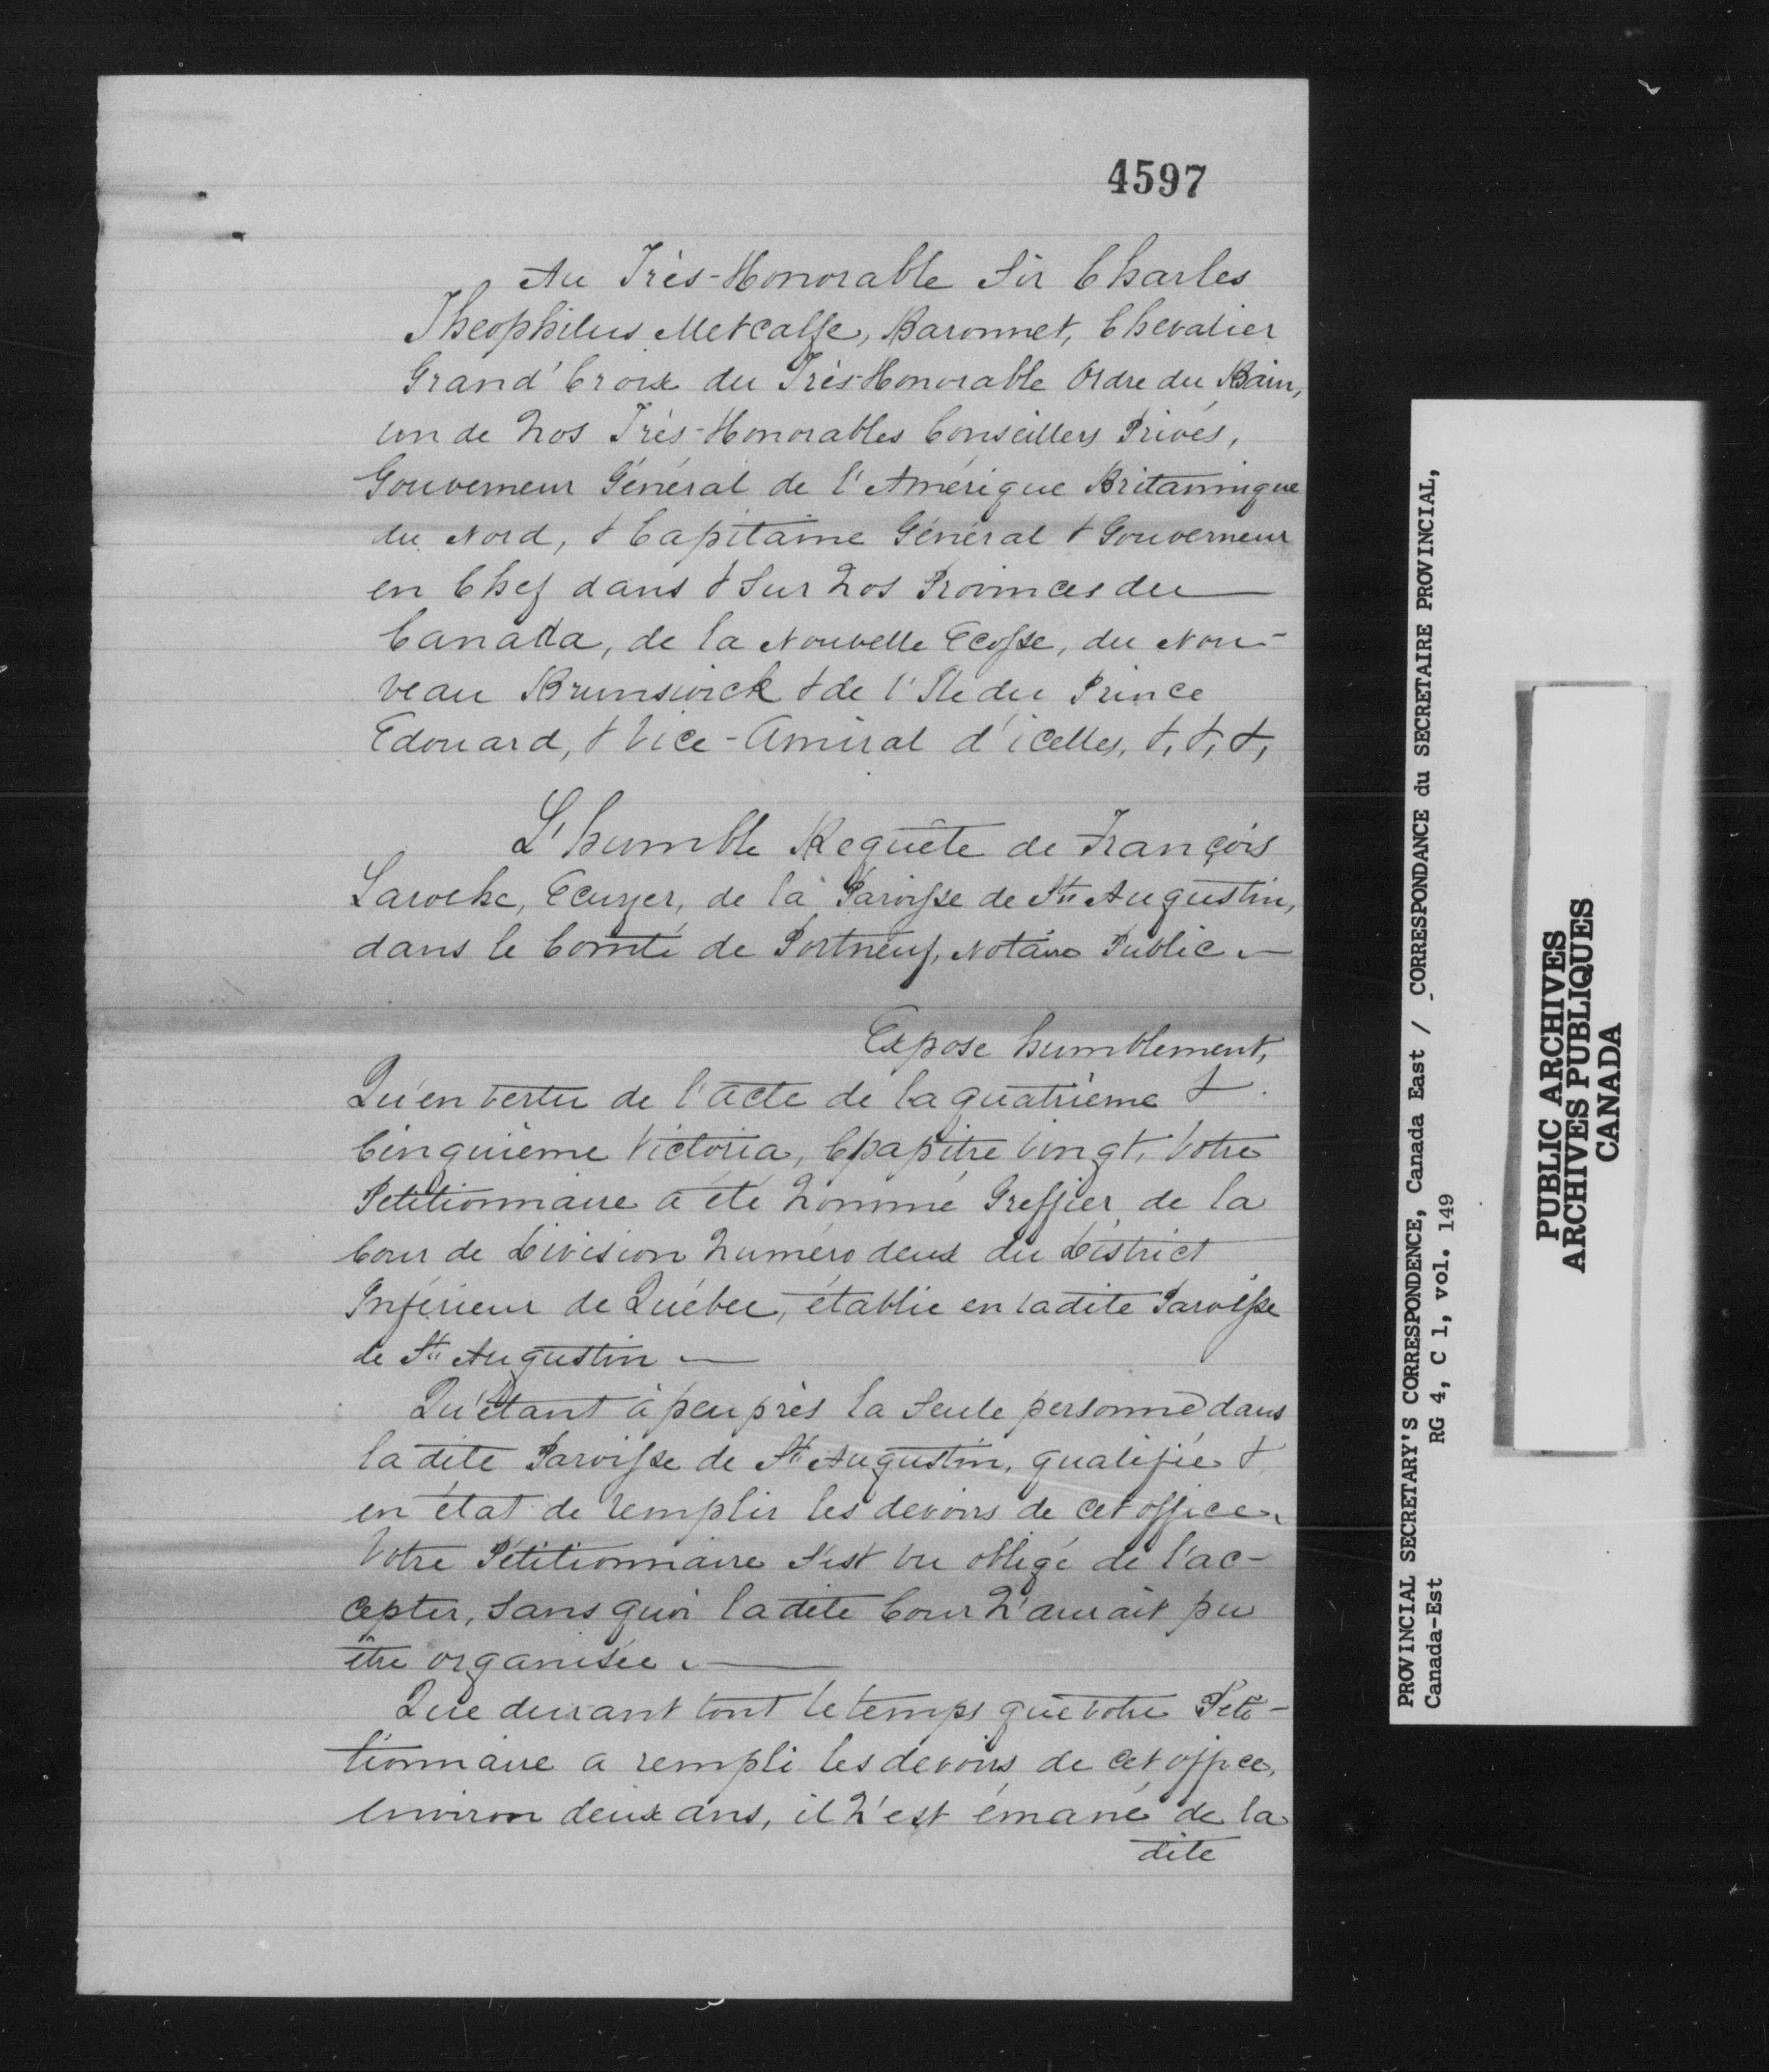 4597
Au Très-Honorable Sir Charles
Theophilus Metcalfe, Baronnet, Chevalier
Grand'Croix du Très-Honorable Ordre du Bain,
un de Nos Très-Honorables Conseillers Privés,
Gouverneur Général de l'Amérique Britannique
du Nord, & Capitaine Général & Gouverneur
en Chef dans & sur Nos Provinces du
Canada, de la Nouvelle Ecosse, du Nou-
veau Brunswick & de l'Ile du Prince
Edouard, & Vice-Amiral d'icelles, &, &, &,
L'humble Requête de François
Laroche, Ecuyer, de la Paroisse de St. Augustin,
dans le Comté de Portneuf, Notaire Public.—
Expose humblement,
Qu'en vertu de l'acte de la quatrième &
Cinquième Victoria, Chapitre vingt, Votre
Petitionnaire a été Nommé Greffier de la
Cour de Division Numéro deux du District
Inférieur de Québec, établie en ladite Paroisse
de St. Augustin.—
Qu'étant à peu près la seule personne dans
la dite Paroisse de St. Augustin, qualifiée &
en état de remplir les devoirs de cet office,
Votre Pétitionnaire s'est vu obligé de l'ac-
cepter, sans quoi la dite Cour N'aurait pu
être organisée.—
Que durant tout le temps que votre Péti-
tionnaire a rempli les devoirs de cet office,
environ deux ans, il N'est émané de la
dite
PROVINCIAL SECRETARY'S CORRESPONDENCE, Canada East / CORRESPONDANCE du SECRETAIRE PROVINCIAL,
Canada-Est RG 4, C 1, vol. 149
PUBLIC ARCHIVES
ARCHIVES PUBLIQUES
CANADA